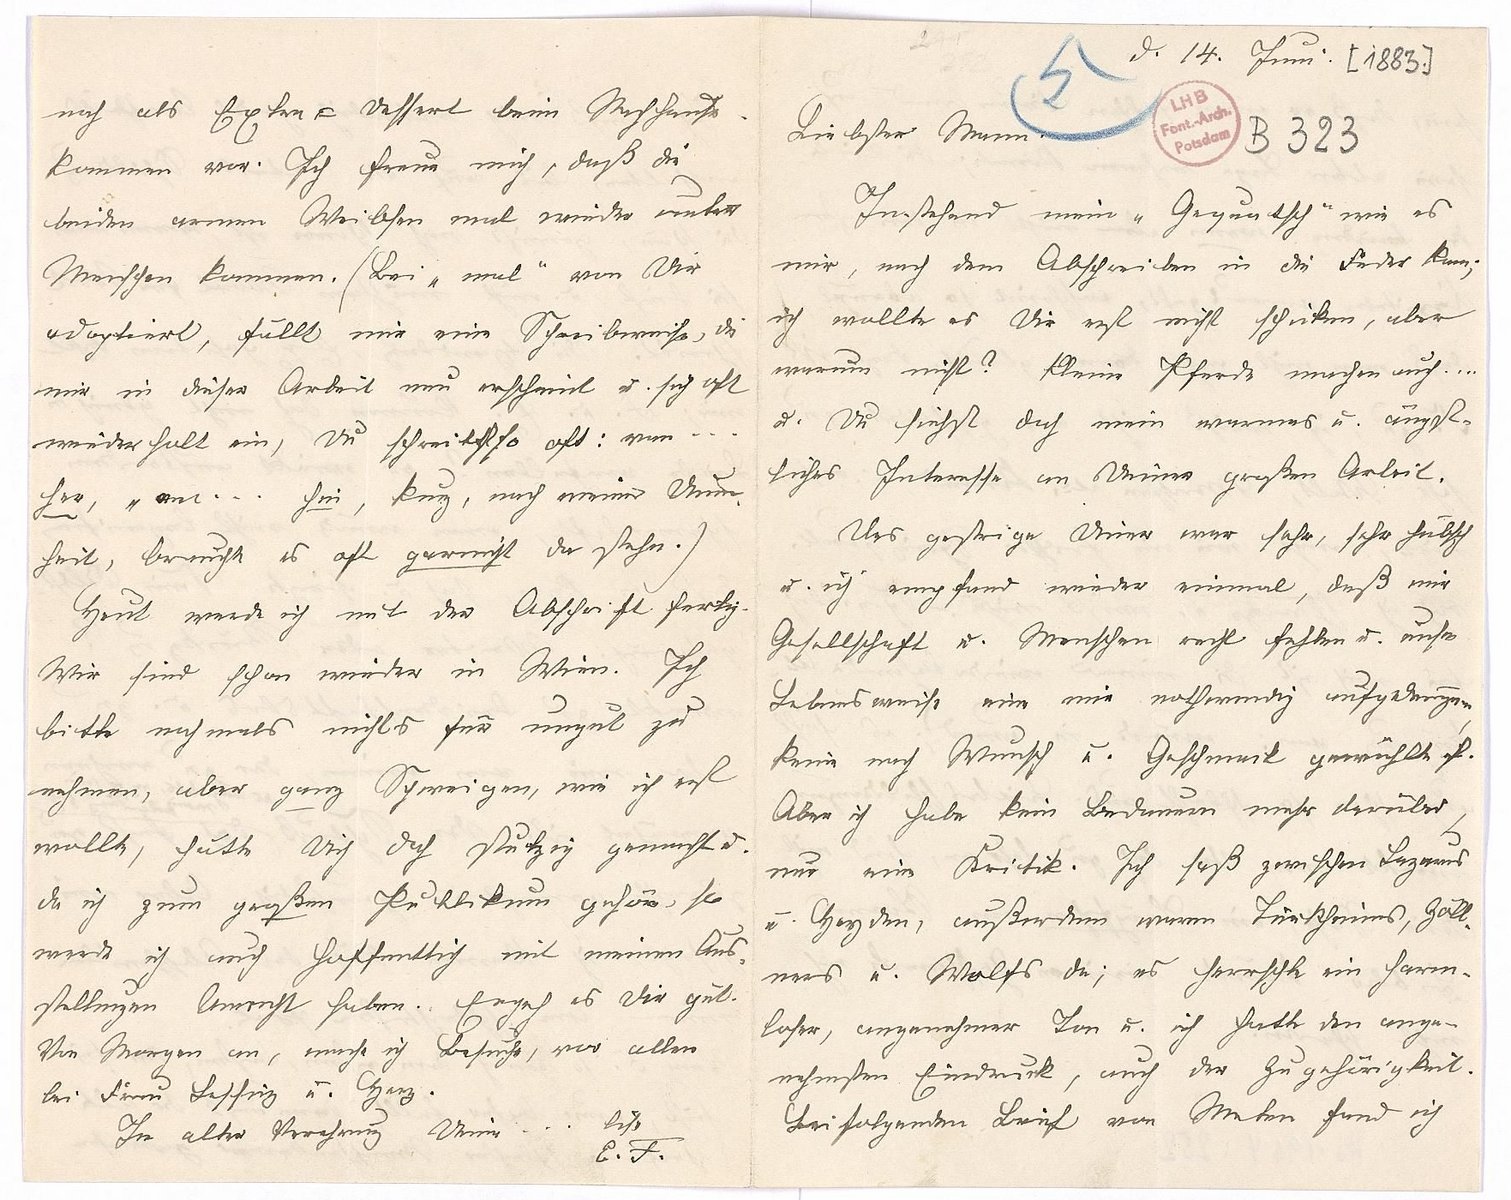 d. 14. Juni. [1883.]
5
LHB
Font.-Arch.
Potsdam
B 323
Liebster Mann.
Instehend mein „Gequatsch" wie es
mir, nach dem Abschreiben in die Feder kam;
ich wollte es Dir erst nicht schicken, aber
warum nicht? Kleine Pferde machen auch ....
u. Du siehst doch mein warmes u. ängst-
liches Interesse an Deiner großen Arbeit.
Das gestrige Diner war sehr, sehr hübsch
u. ich empfand wieder einmal, daß mir
Gesellschaft u. Menschen recht fehlen u. unsre
Lebensweise eine mir nothwendig aufgedrungene,
keine nach Wunsch u. Geschmack gewählte ist.
Aber ich habe kein Bedauern mehr darüber,
nur eine Kritik. Ich saß zwischen Lazarus
u. Heyden, außerdem waren Türkheims, Zöll-
ners u. Wolfs da; es herrschte ein harm-
loser, angenehmer Ton u. ich hatte den ange-
nehmsten Eindruck, auch der Zugehörigkeit.
Beifolgenden Brief von Meten fand ich
noch als Extra = Dessert beim Nachhause-
kommen vor. Ich freue mich, daß die
beiden armen Weibsen mal wieder unter
Menschen kommen. (Bei „mal" von Dir
adoptiert, fällt mir eine Schreibweise, die
mir in dieser Arbeit neu erscheint u. sich oft
wiederholt ein, Du schreibst so oft: von ...
her, „an ... hin, kurz, nach meiner Dumm-
heit, brauchte es oft garnicht da stehn.)
Heut werde ich mit der Abschrift fertig.
Wir sind schon wieder in Wien. Ich
bitte nochmals nichts für ungut zu
nehmen, aber ganz Schweigen, wie ich erst
wollte, hätte Dich doch stutzig gemacht u.
da ich zum großen Publikum gehöre, so
werde ich auch hoffentlich mit meinen Aus-
stellungen Unrecht haben. Ergeh es Dir gut.
Von Morgen an, mache ich Besuche, vor allem
bei Frau Lessing u. Herz.
In alter Verehrung Deine ... alte
E. F.